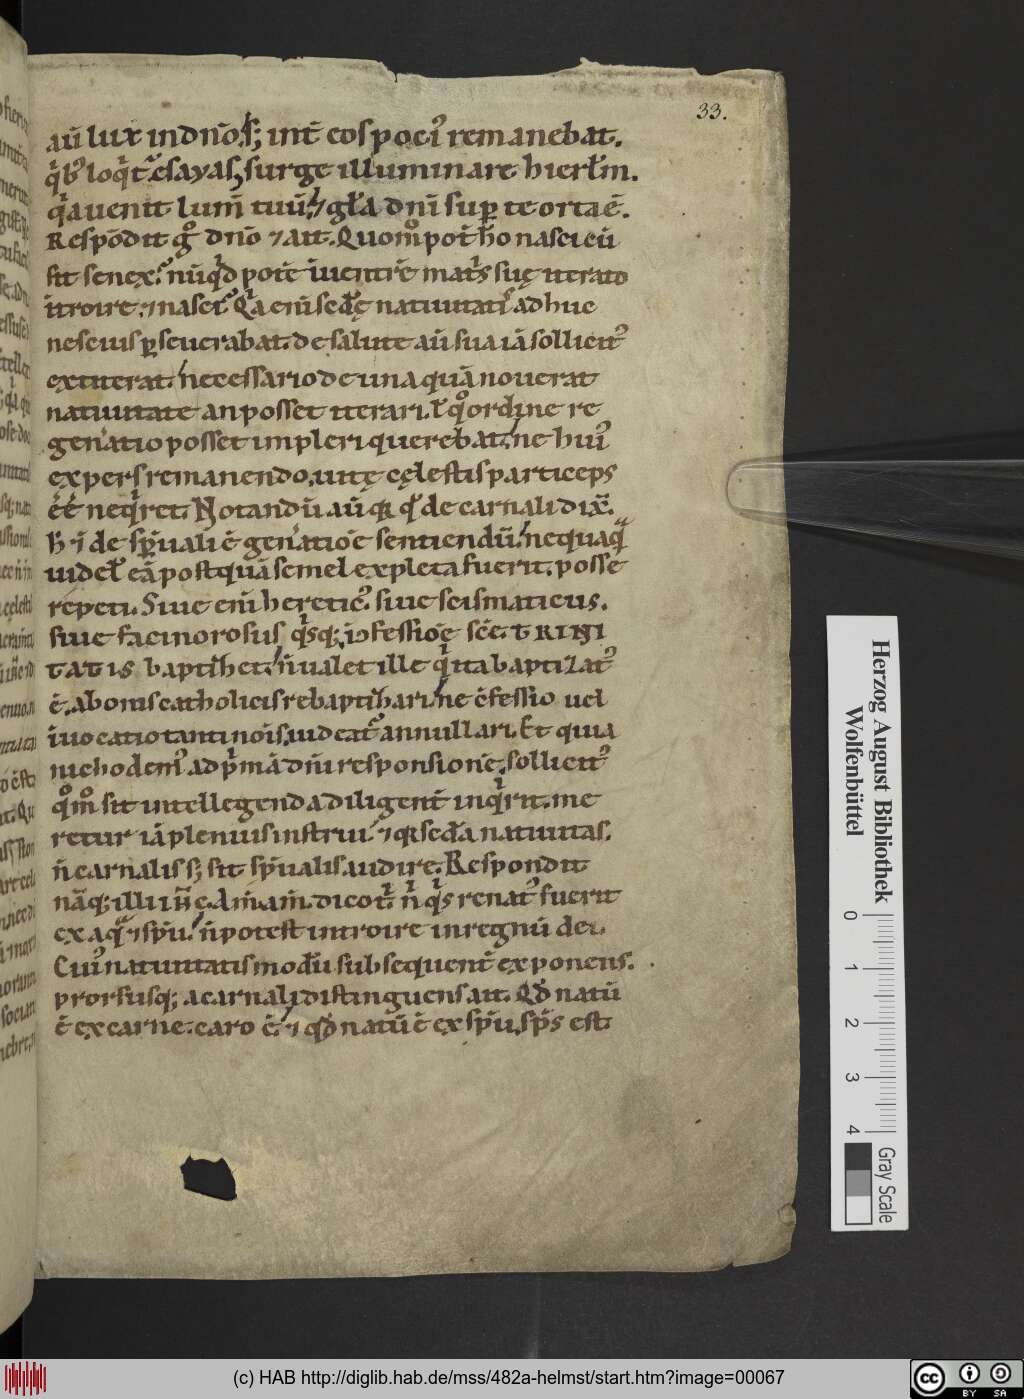 33.
aū lux in dn̄o. s; int̄ eos poci᷒ remanebat.
q͛b᷒ loq͛t᷑ esayas, surge illuminare hierłm.
q͛a uenit lum̄ tuū. ⁊ gła dn̄i sup̱ te orta ē.
Respōdit g̊ dn̄o ⁊ ait. Quom̊ pot̄ hō nasci cū
sit senex? nūq͛d potē uentrē mat͛s suę iterato
īt̄roire, ⁊ nasci? Q͛a eni sc̄dę natiuitati᷒ adhuc
nescius p̱seuerabat. de salute aū sua iā sollicit᷒
extiterat, necessario de una quā nouerat
natiuitate an posset iterari. ł q̊ ordine re
gen͛atio posset impleri querebat. ne hui᷒
expers remanendo. uitę cęlestis particeps
ēē neq͛ret. Notandū aū q̱ qd̄ de carnali dix̄.
h̄ ⁊ de sp̄uali ē gen͛atiōe sentiendū. nequaq̄
uidel̄ eā postquā semel expleta fuerit. posse
repeti. Siue eni heretic᷒. siue scismaticus.
siue facinorosus q͛sq; ī ɔfessiōe sc̄e TRINI
TATIS baptizet. n̄ ualet ille q͛ ita baptizat᷒
ē. a bonis catholicis rebaptizari. ne ɔfessio uel
īuocatio tanti nōis. uideat᷑ annullari. Et quia
nichodem᷒ ad p͛mā dn̄i responsionē. sollicit᷒
q̊m̊ sit intellegenda diligent̄ inq͛rit. me
retur iā plenius instrui. ⁊ q̱ sc̄da natiuitas.
n̄ carnalis s; sit sp̄ualis audire. Respondit
nāq; illi ih̄c. Am̄. am̄. dico t͛. n͛ q͛s renat᷒ fuerit
ex aq̄ ⁊ sp̄u. n̄ potest introire in regnū dei.
Cui᷒ natiuitatis modū subsequent̄ exponens.
prorsusq; a carnali distinguens ait. Qd̄ natū
ē ex carne. caro ē. ⁊ qd̄ natū ē ex sp̄u. sp̄s est
Herzog August Bibliothek
Wolfenbüttel
0 1 2 3 4
Gray Scale
(c) HAB http://diglib.hab.de/mss/482a-helmst/start.htm?image=00067
cc BY SA